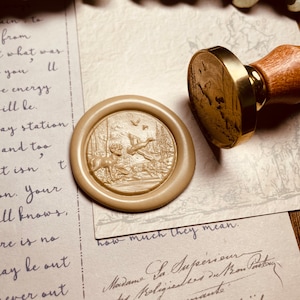 from
t what was
you'll
e energy
ill be.
ay station
and too
t isn't t
on. Your
ll knows,
ere is no
ay be out
ever out
how much they mean.
Madame La Superieur
des Religieuses du Bon Pasteur